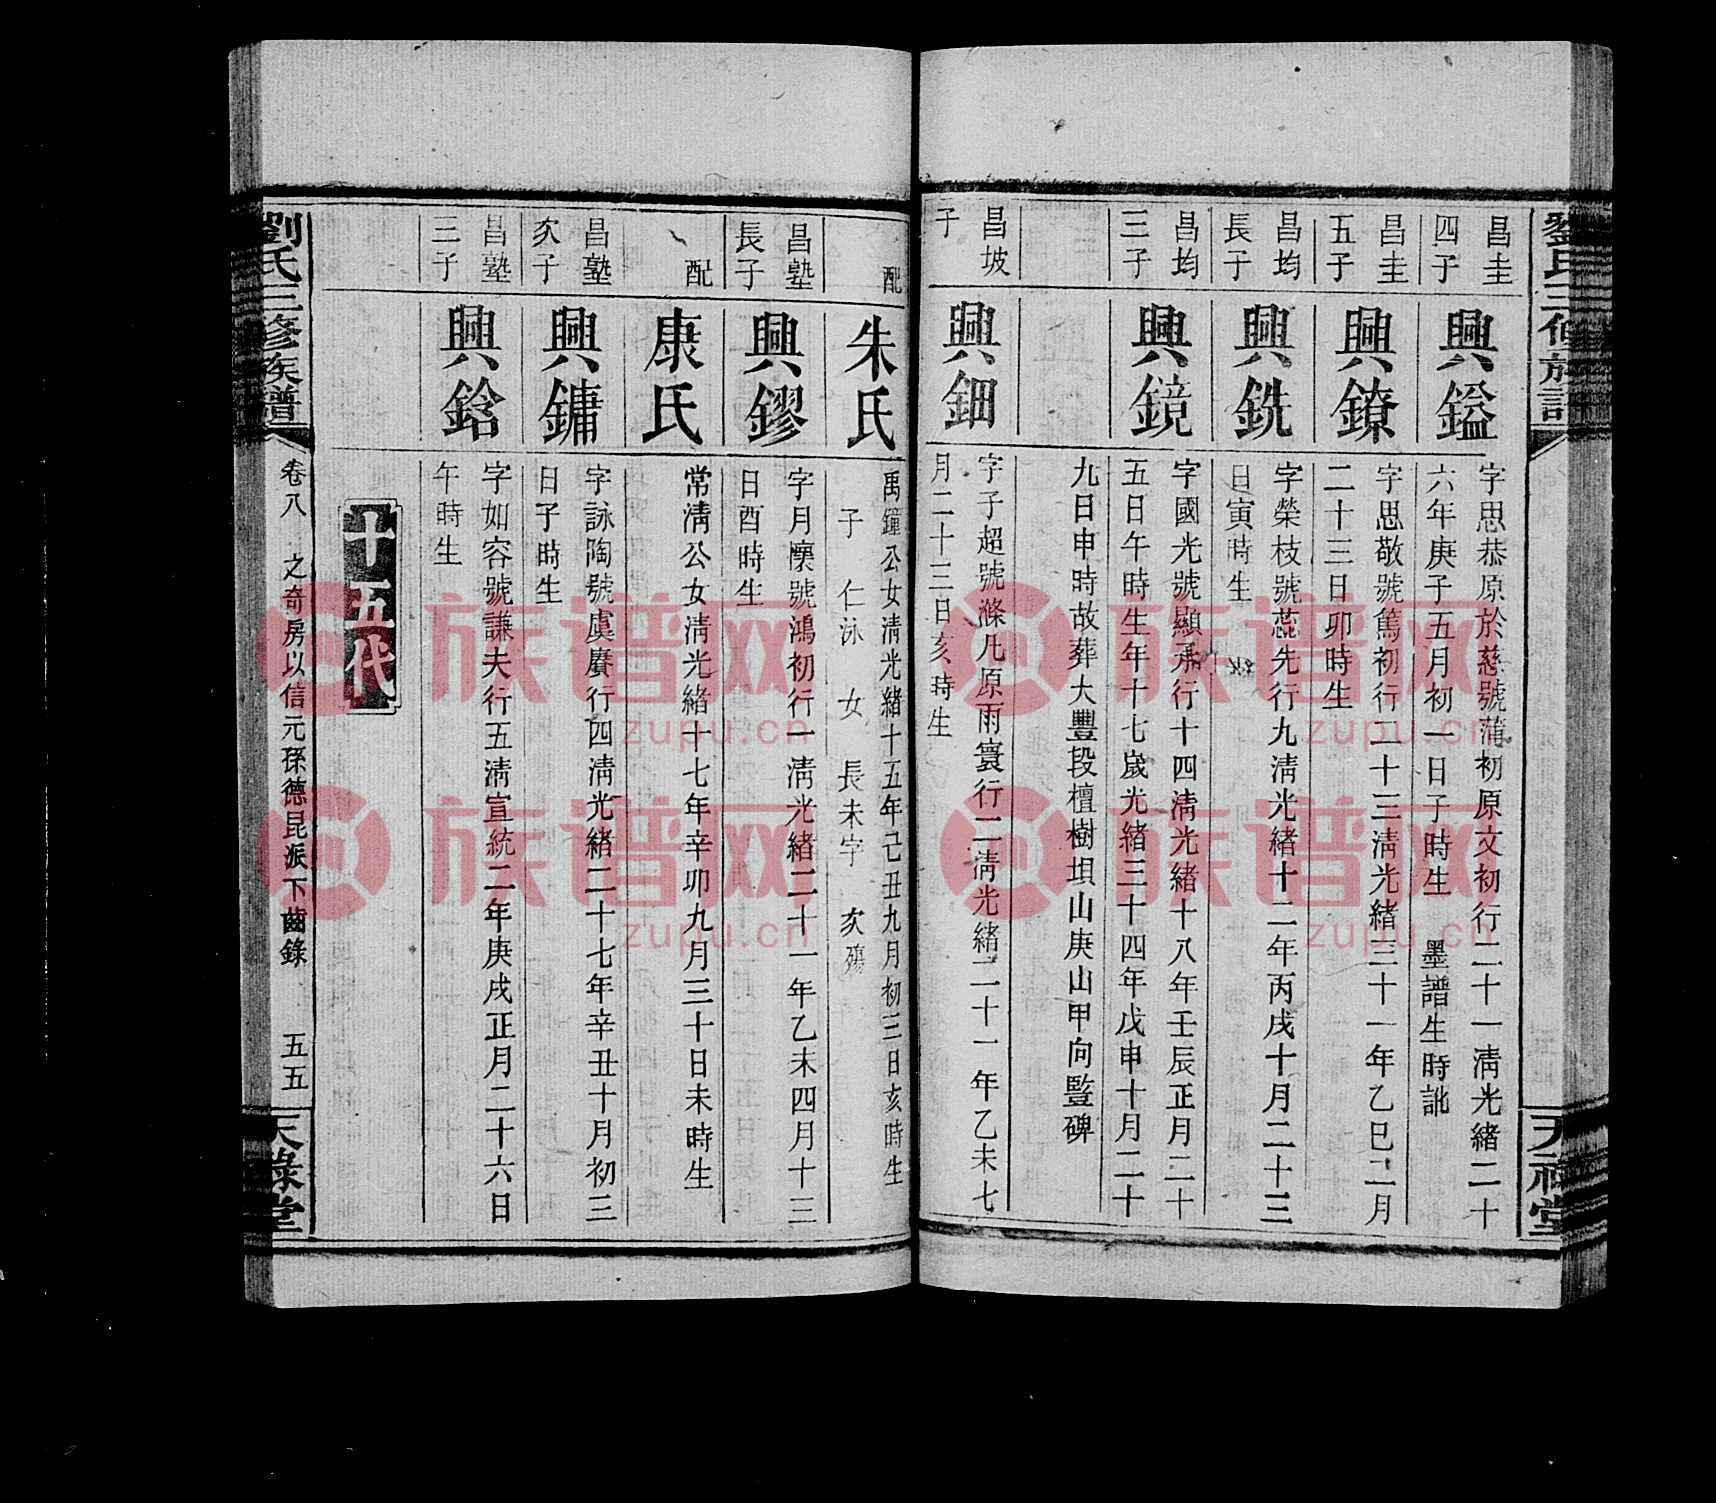 劉氏三修族譜
天祿堂
昌圭
四子
興鎰
字思恭原於慈號蒲初原文初行二十一清光緒二十
六年庚子五月初一日子時生 墨譜生時訛
昌圭
五子
興鐐
字思敬號篤初行二十三清光緒三十一年乙巳二月
二十三日卯時生
昌均
長子
興銑
字榮枝號蕊先行九清光緒十二年丙戌十月二十三
日寅時生
昌均
三子
興鏡
字國光號顯承行十四清光緒十八年壬辰正月二十
五日午時生年十七歲光緒三十四年戊申十月二十
九日申時故葬大豐段檀樹垻山庚山甲向豎碑
昌坡
子
興鈿
字子超號滌凡原雨寰行二清光緒二十一年乙未七
月二十三日亥時生
配
朱氏
禹鐘公女清光緒十五年己丑九月初三日亥時生
子 仁泳 女 長未字 次殤
昌塾
長子
興鏐
字月懷號鴻初行一清光緒二十一年乙未四月十三
日酉時生
配
康氏
常清公女清光緒十七年辛卯九月三十日未時生
昌塾
次子
興鏞
字詠陶號虞賡行四清光緒二十七年辛丑十月初三
日子時生
昌塾
三子
興鋡
字如容號謙夫行五清宣統二年庚戌正月二十六日
午時生
十五代
劉氏三修族譜
卷八 之奇房以信元孫德昆派下齒錄 五五
天祿堂
族谱网
zupu.cn
族谱网
zupu.cn
族谱网
zupu.cn
族谱网
zupu.cn